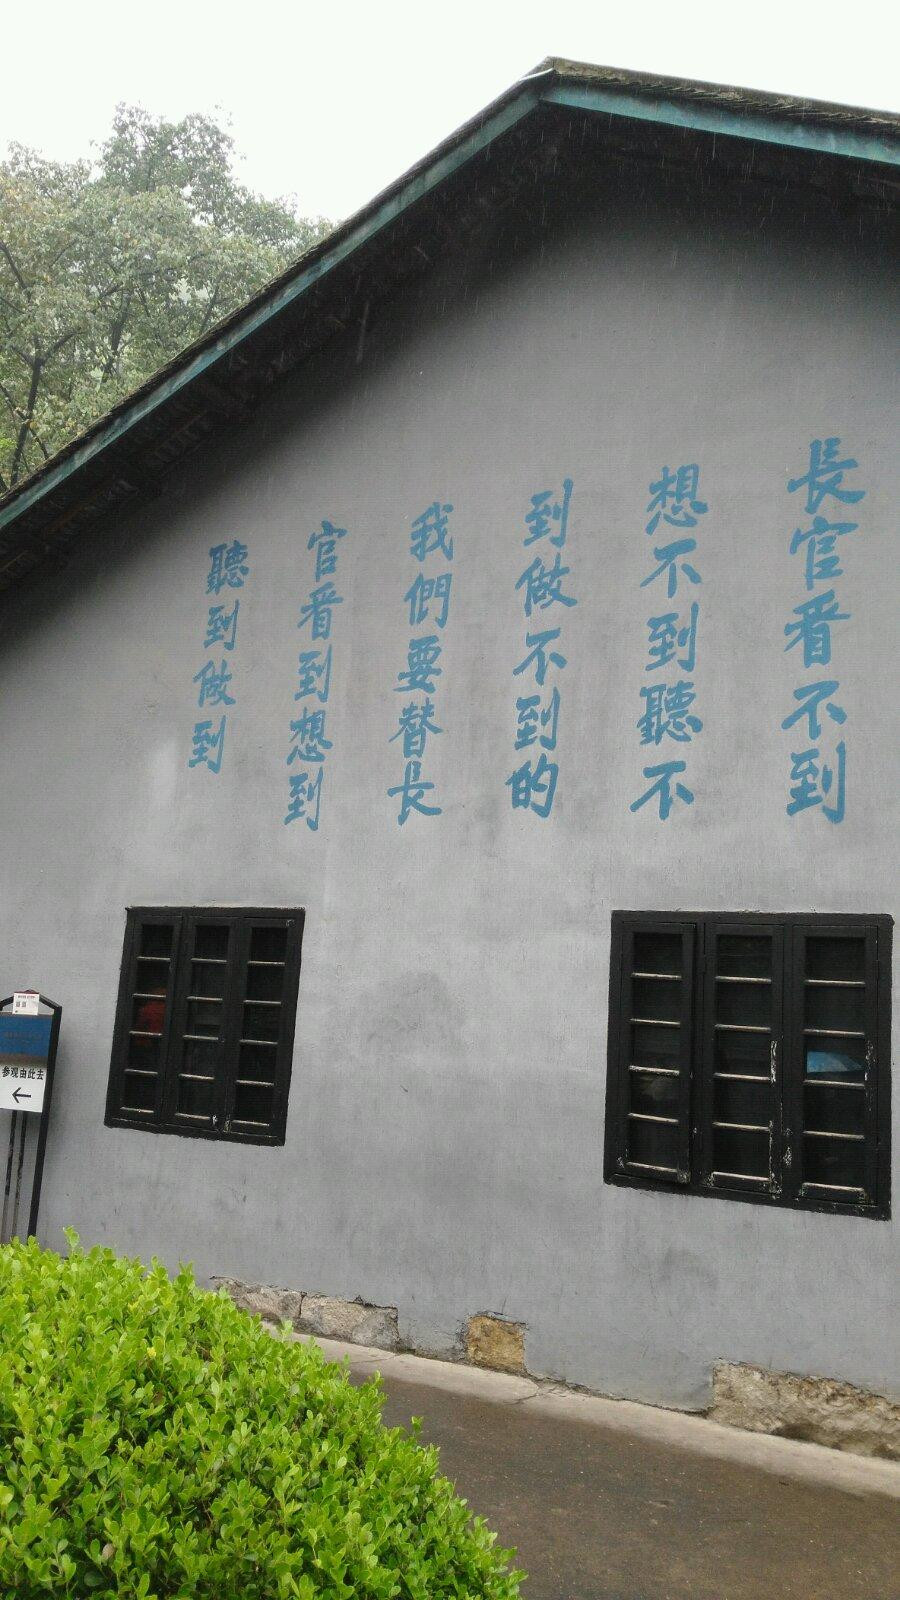 長官看不到
想不到聽不
到做不到的
我們要替長
官看到想到
聽到做到
参观由此去